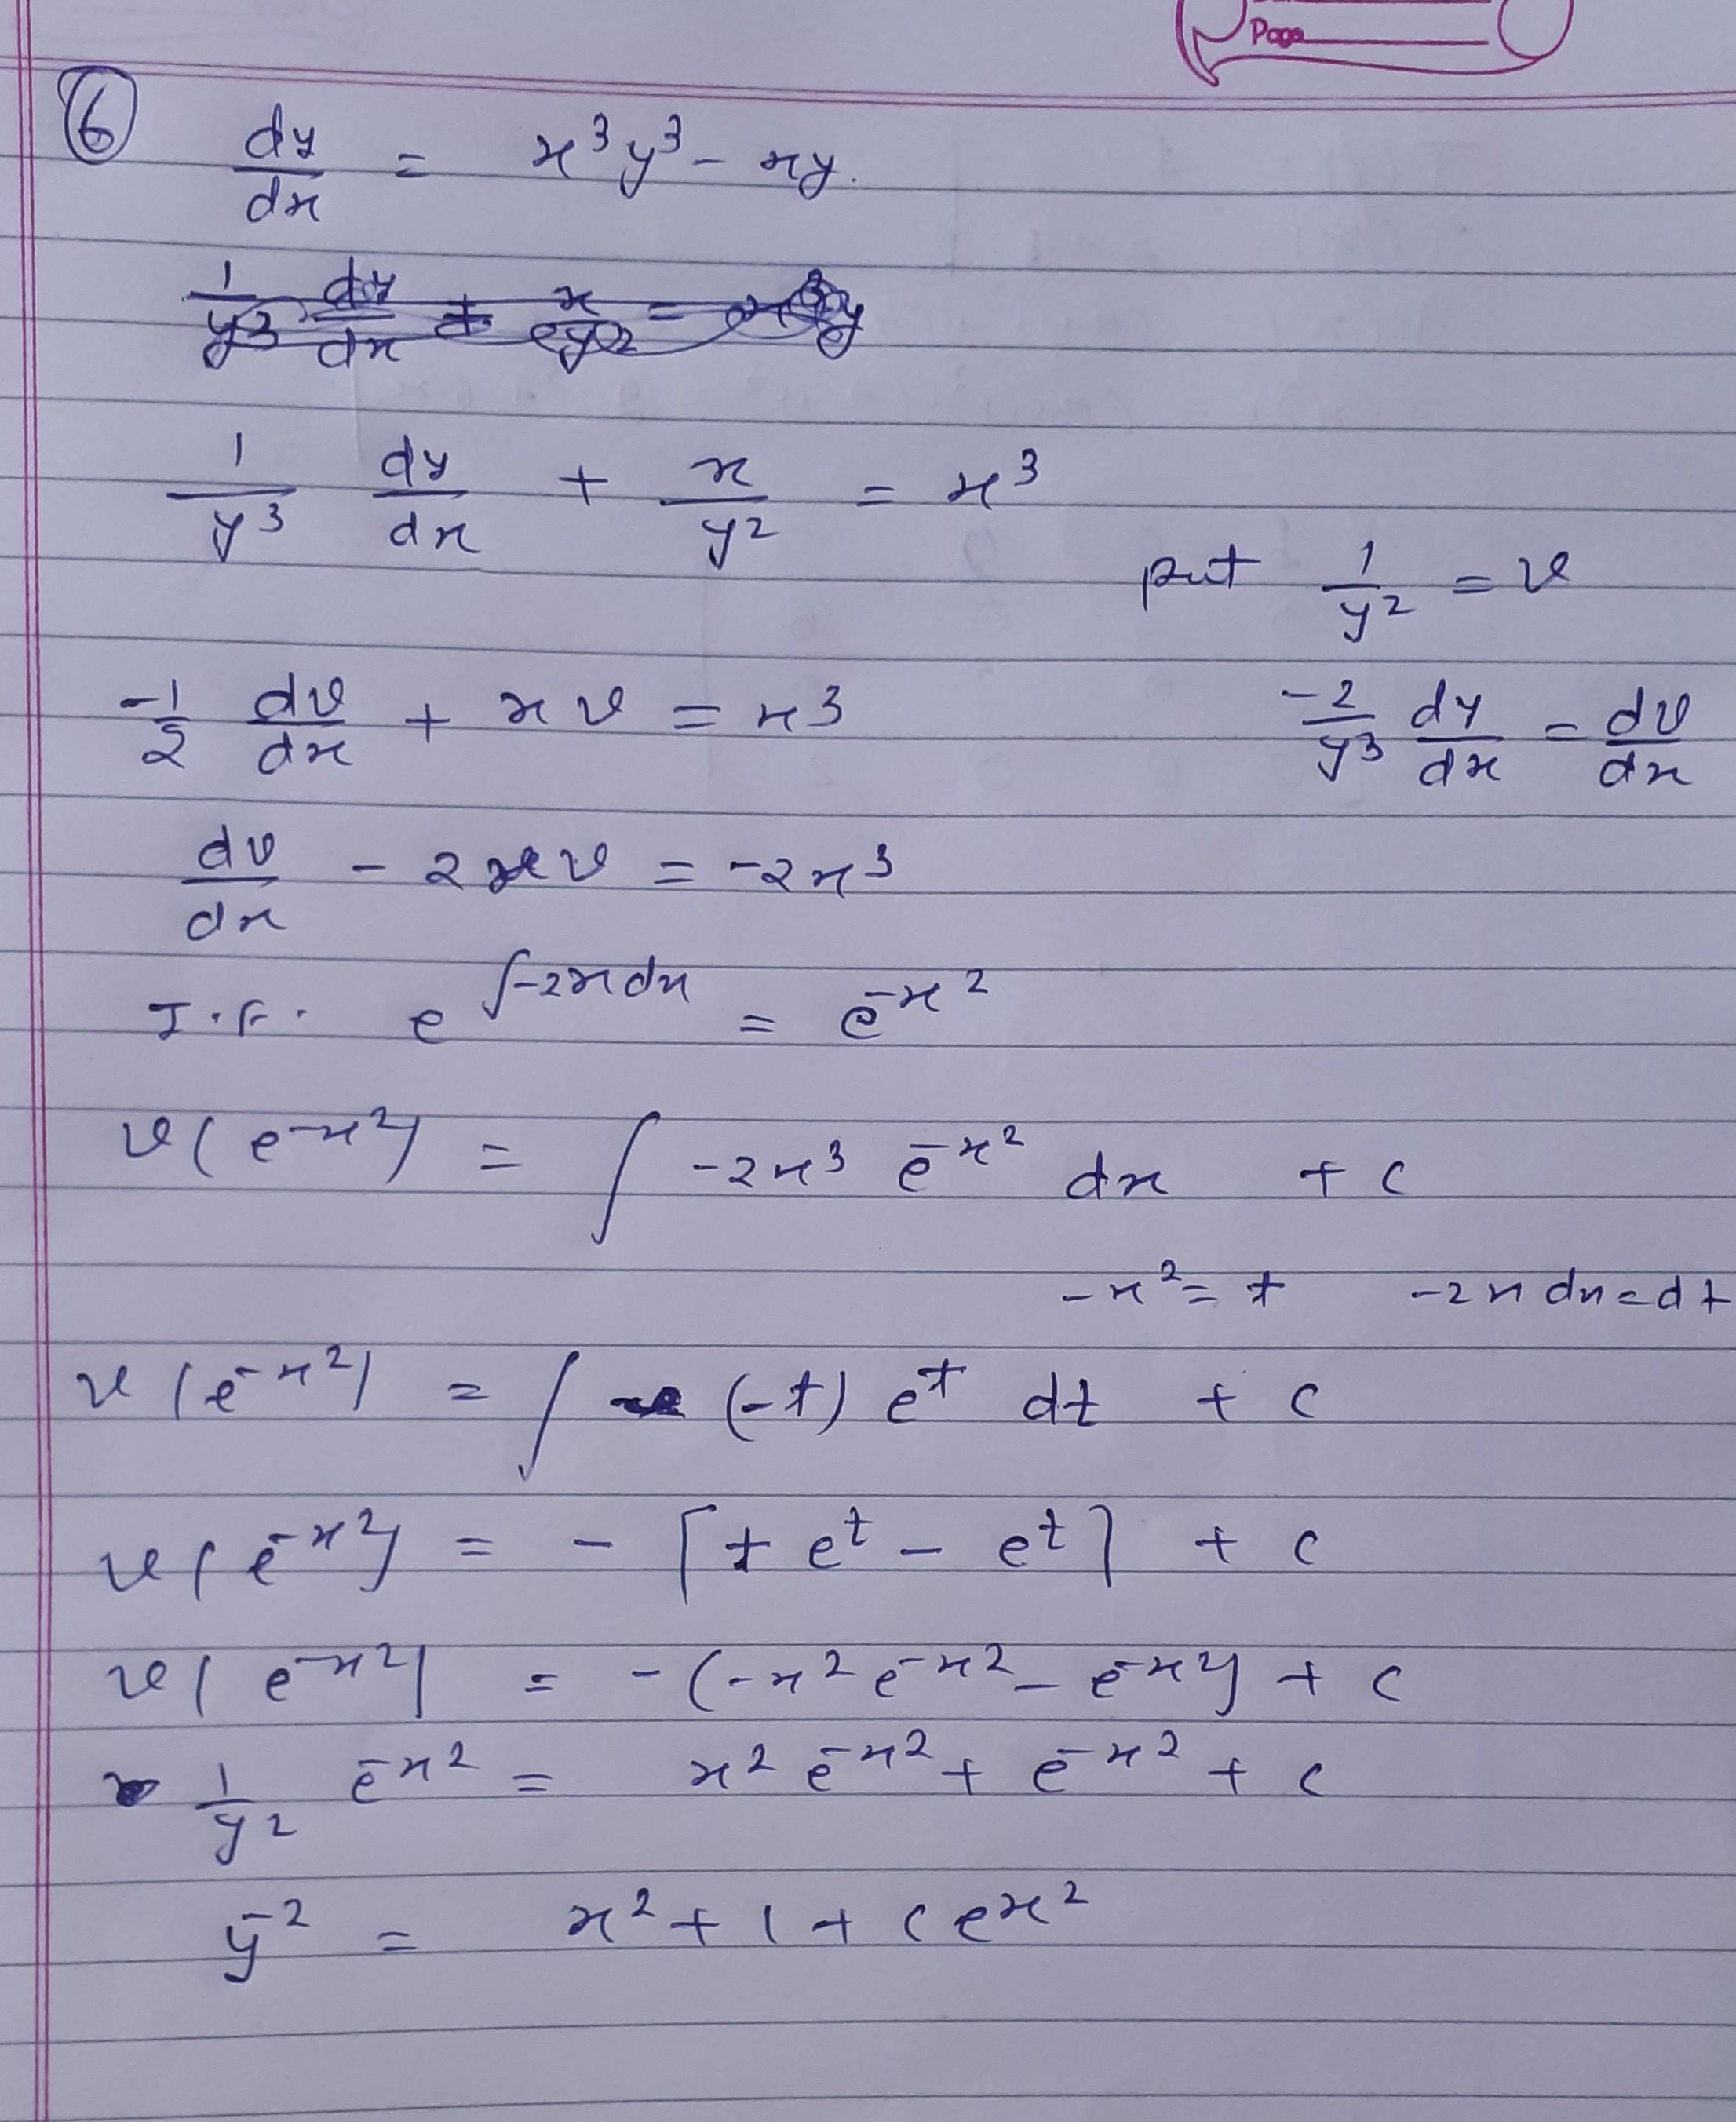 Page
⑥ dy/dx = x³y³ - xy.
1/y³ dy/dx + x/y² = x³
put 1/y² = v
-1/2 dv/dx + xv = x³
-2/y³ dy/dx = dv/dx
dv/dx - 2xv = -2x³
I.F. e^∫-2xdx = e^-x²
v(e^-x²) = ∫ -2x³ e^-x² dx + c
-x² = t -2x dx = dt
v(e^-x²) = ∫ (-t) e^t dt + c
v(e^-x²) = - [t e^t - e^t] + c
v(e^-x²) = -(-x² e^-x² - e^-x²) + c
1/y² e^-x² = x² e^-x² + e^-x² + c
y^-2 = x² + 1 + c e^x²